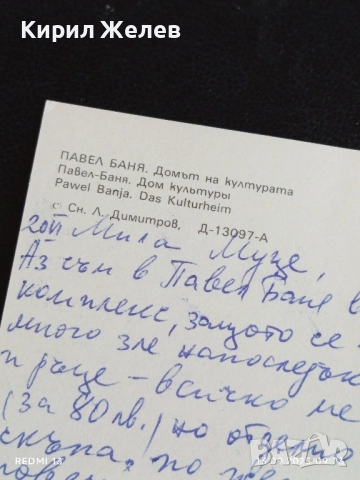 Кирил Желев
ПАВЕЛ БАНЯ. Домът на културата
Павел-Баня. Дом культуры
Pawel Banja. Das Kulturheim
с Сн. Л. Димитров, Д-13097-А
Мила Муце,
Аз съм в Павел Баня в
комплекс, защото се
много зле напоследък
и ръце - всичко ме
(за 80 лв.) но
скъпа, по
REDMI 13